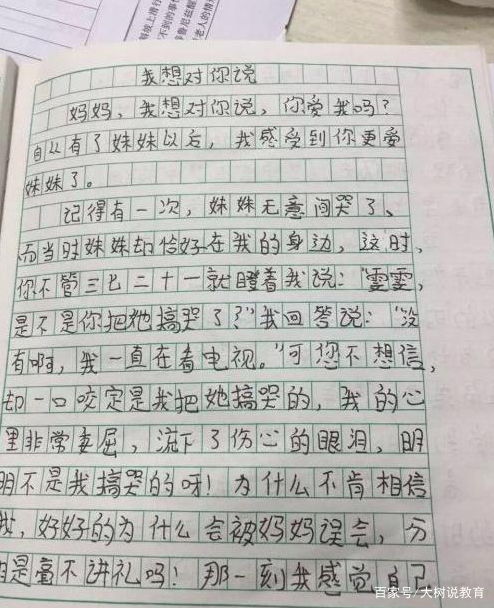 我想对你说
妈妈，我想对你说，你爱我吗？
自从有了妹妹以后，我感受到你更爱
妹妹了。
记得有一次，妹妹无意间哭了、
而当时妹妹却恰好在我的身边，这时，
你不管三七二十一就瞪着我说：“雯雯，
是不是你把她搞哭了？”我回答说：“没
有啊，我一直在看电视。”可您不想信，
却一口咬定是我把她搞哭的，我的心
里非常委屈，流下了伤心的眼泪，明
明不是我搞哭的呀！为什么不肯相信
我，好好的为什么会被妈妈误会，分
明是毫不讲礼吗！那一刻我感觉自己
百家号/大树说教育